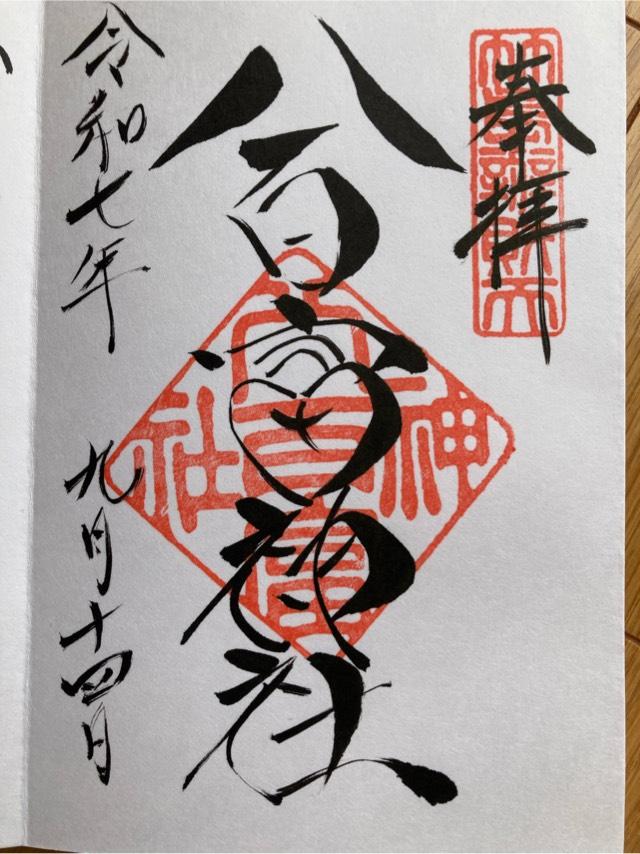 奉拝
竹島辨財天
八百富神社
八百富神社
令和七年 九月十四日